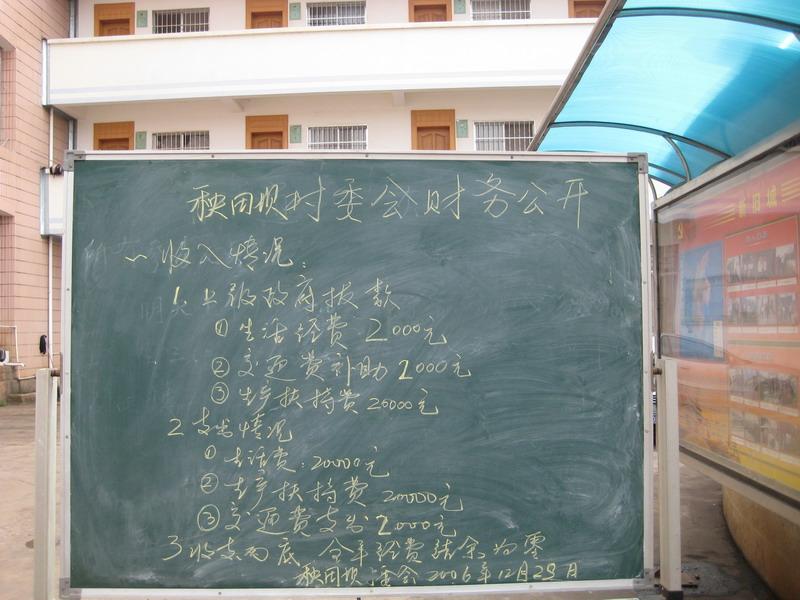 秧田坝村委会财务公开
一 收入情况:
1、上级政府拔款
① 生活经费 2000元
② 交通费补助 2000元
③ 生产扶持费 20000元
2 支出情况
① 生活费:20000元
② 生产扶持费 20000元
③ 交通费支出 2000元
3 收支两底 今年经费结余为零
秧田坝 委会 2006年12月29日